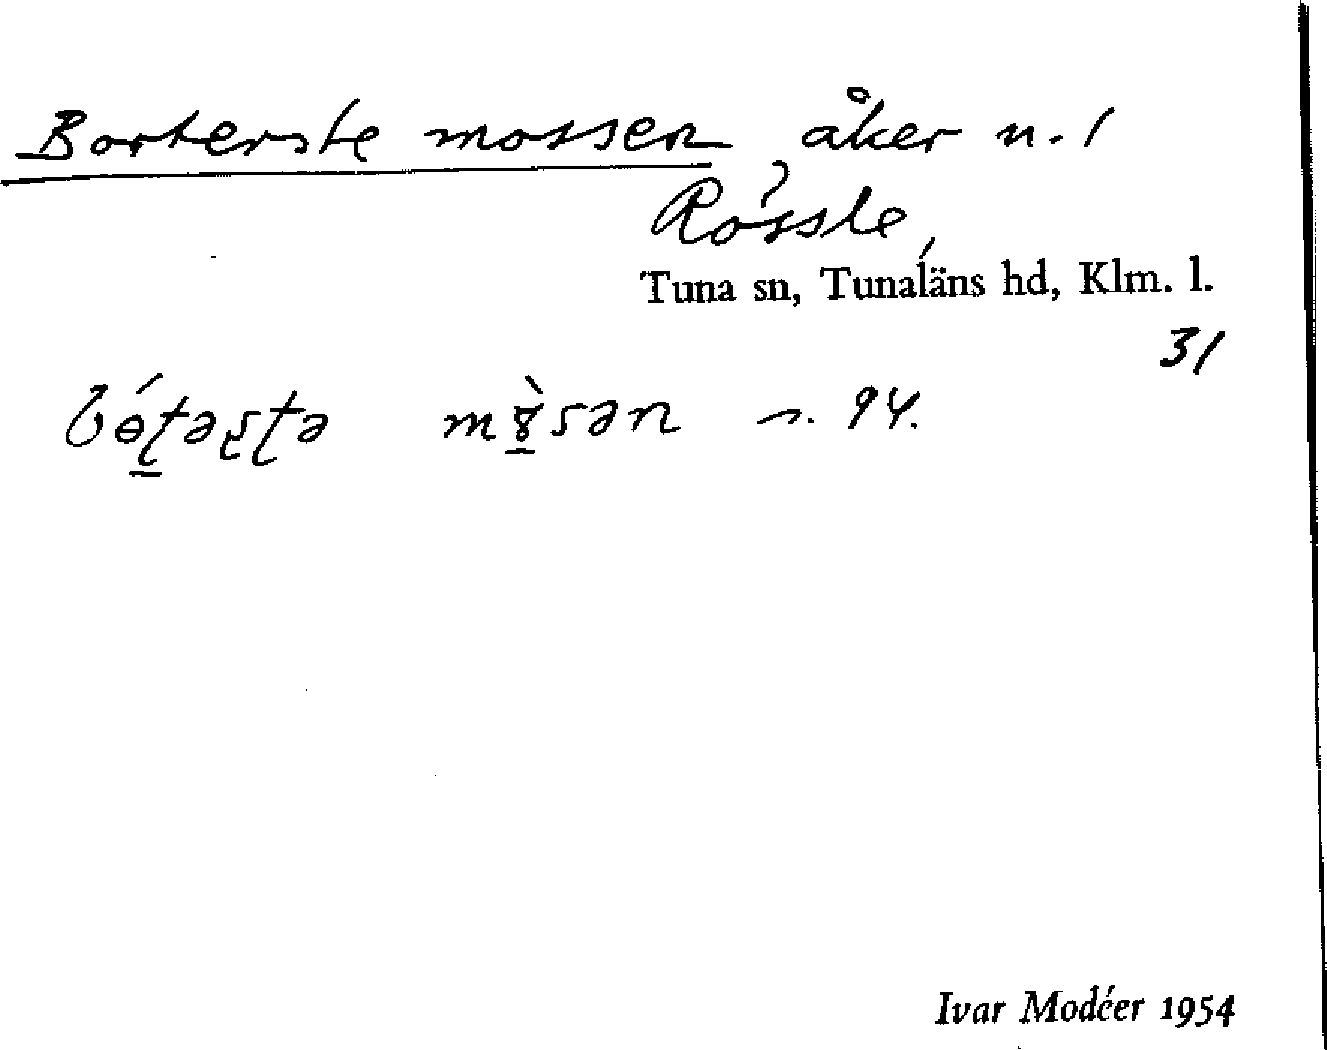 Borterste mossen, åker n. 1
Rössle,
Tuna sn, Tunaläns hd, Klm. l.
31
94.
Ivar Modéer 1954